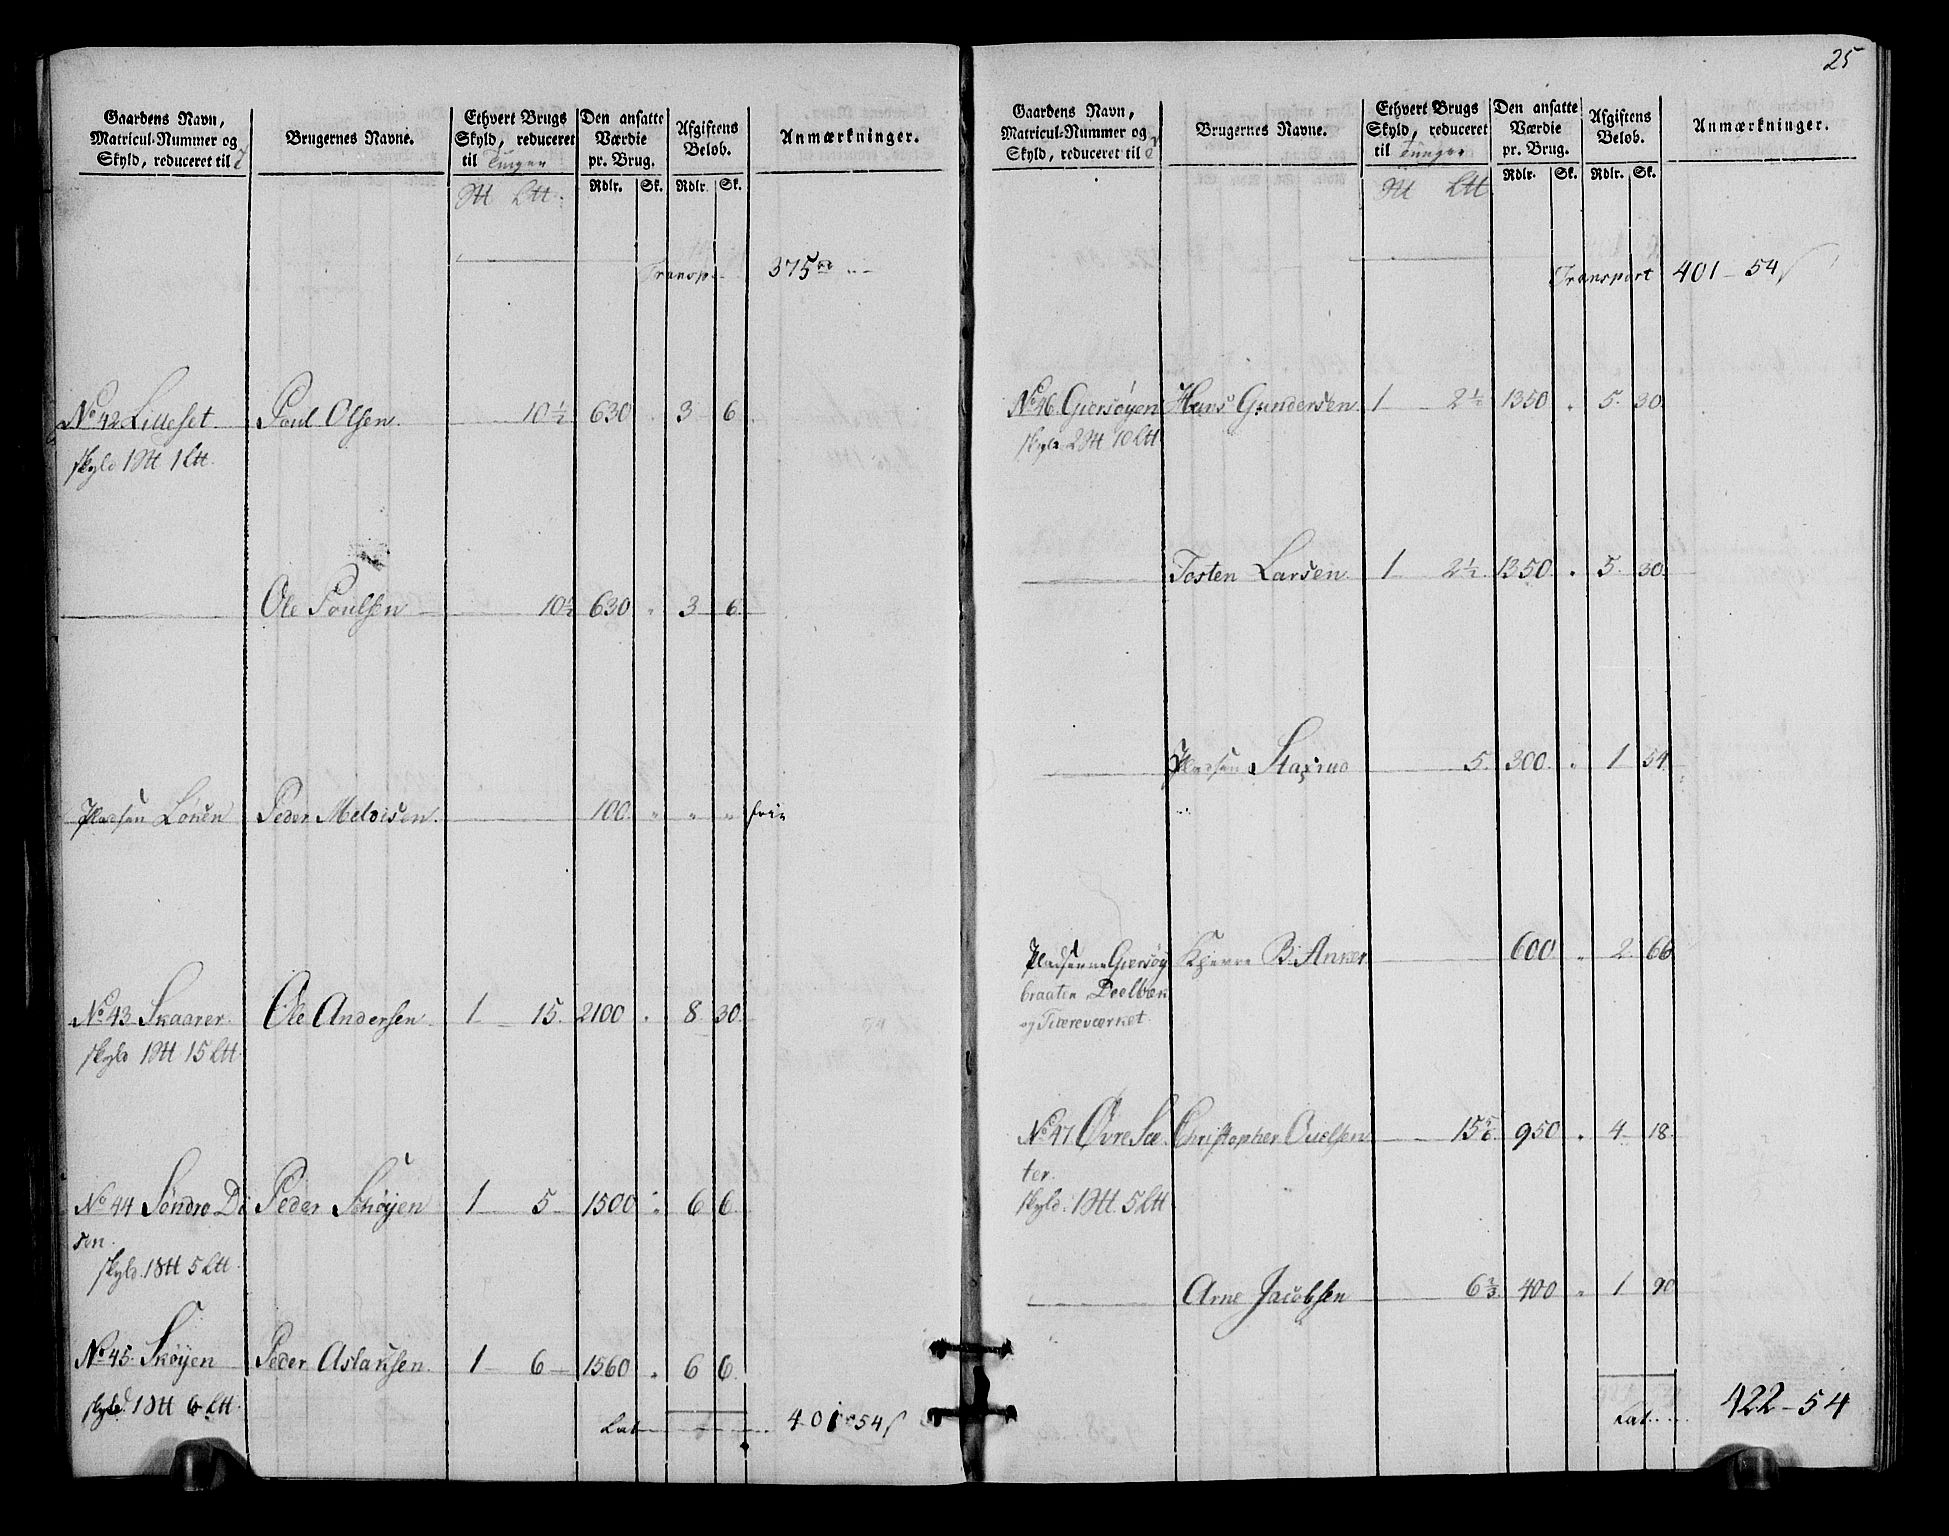 Gaardens Navn,
Matricul-Nummer og
Skyld, reduceret til
Brugernes Navne.
Ethvert Brugs
Skyld, reduceret
til Tunger
Den ansatte
Værdie
pr. Brug.
Afgiftens
Beløb.
Anmærkninger.
Rdlr. Sk. Rdlr. Sk.
Transp. 375
No 42 Lilleset Poul Olsen. 10½ 630 " 3 6
skyld 1 1
Ole Poulsen 10½ 630 " 3 6
Pladsen Løuen Peder Meloisen. 100. " " " frie
No 43 Skaarer Ole Andersen 1 15. 2100 " 8 30
skyld 1 15
No 44 Søndre Dø Peder Schøyen 1 5 1500 " 6 6
sen.
skyld. 1 5
No 45. Skøyen Peder Aslaksen 1 6 1560 " 6 6
skyld 1 6
Lat. 401 54
25
Gaardens Navn,
Matricul-Nummer og
Skyld, reduceret til
Brugernes Navne.
Ethvert Brugs
Skyld, reduceret
til Tunger
Den ansatte
Værdie
pr. Brug.
Afgiftens
Beløb.
Anmærkninger.
Rdlr. Sk. Rdlr. Sk.
Transport 401 54
No 46 Giersøyen Hans Gundersen 1 2½ 1350 " 5. 30
skyld 2 10
Tosten Larsen. 1 2½ 1350 " 5. 30
Pladsen Staxrud 5. 300. " 1 54
Pladserne Giersøy B. Anker 600 " 2. 66
braaten Deelbek
og Tiæreværket
No 47 Øvre Sæ Christopher Ouelsen 15 950 " 4 18.
ter.
skyld. 1 5
Arne Jacobsen 6⅔ 400 " 1 90
Lat. 422-54